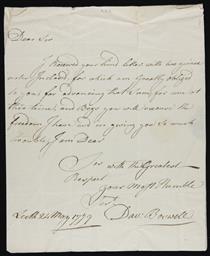 Dear Sir
I Received your kind letter with two guineas
order Inclosed for which am Greatly obliged
to you, for advancing that Sum for me at
this time, and Begs you will excuse the
freedom I have and am giving you So much
trouble, I am Dear
Sir with the Greatest
Respect
your Most Humble
Ser
Leith 24 May 1779 Davd Boswell